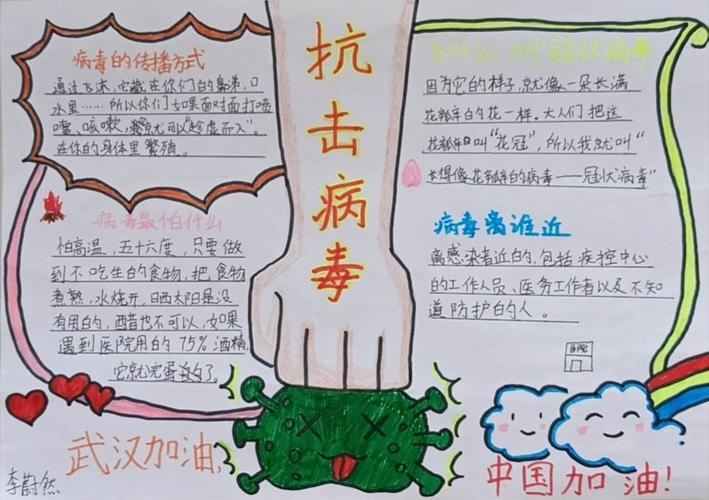 抗击病毒
病毒的传播方式
通过飞沫,它藏在你们的鼻涕,口
水里……所以你们如果面对面打喷
嚏、咳嗽,就可以“趁虚而入”。
在你的身体里繁殖。
病毒最怕什么
怕高温,五十六度,只要做
到不吃生的食物,把食物
煮熟,水烧开,日晒太阳是没
有用的,醋也不可以,如果
遇到医院用的75%酒精,
它就完蛋了。
为什么叫冠状病毒
因为它的样子,就像一朵长满
花瓣的花一样。大人们把这
花瓣叫“花冠”,所以我就叫“
长得像花瓣的病毒——冠状病毒”
病毒离谁近
离感染者近的,包括疾控中心
的工作人员、医务工作者以及不知
道防护的人。
武汉加油!
中国加油!
李蔚然